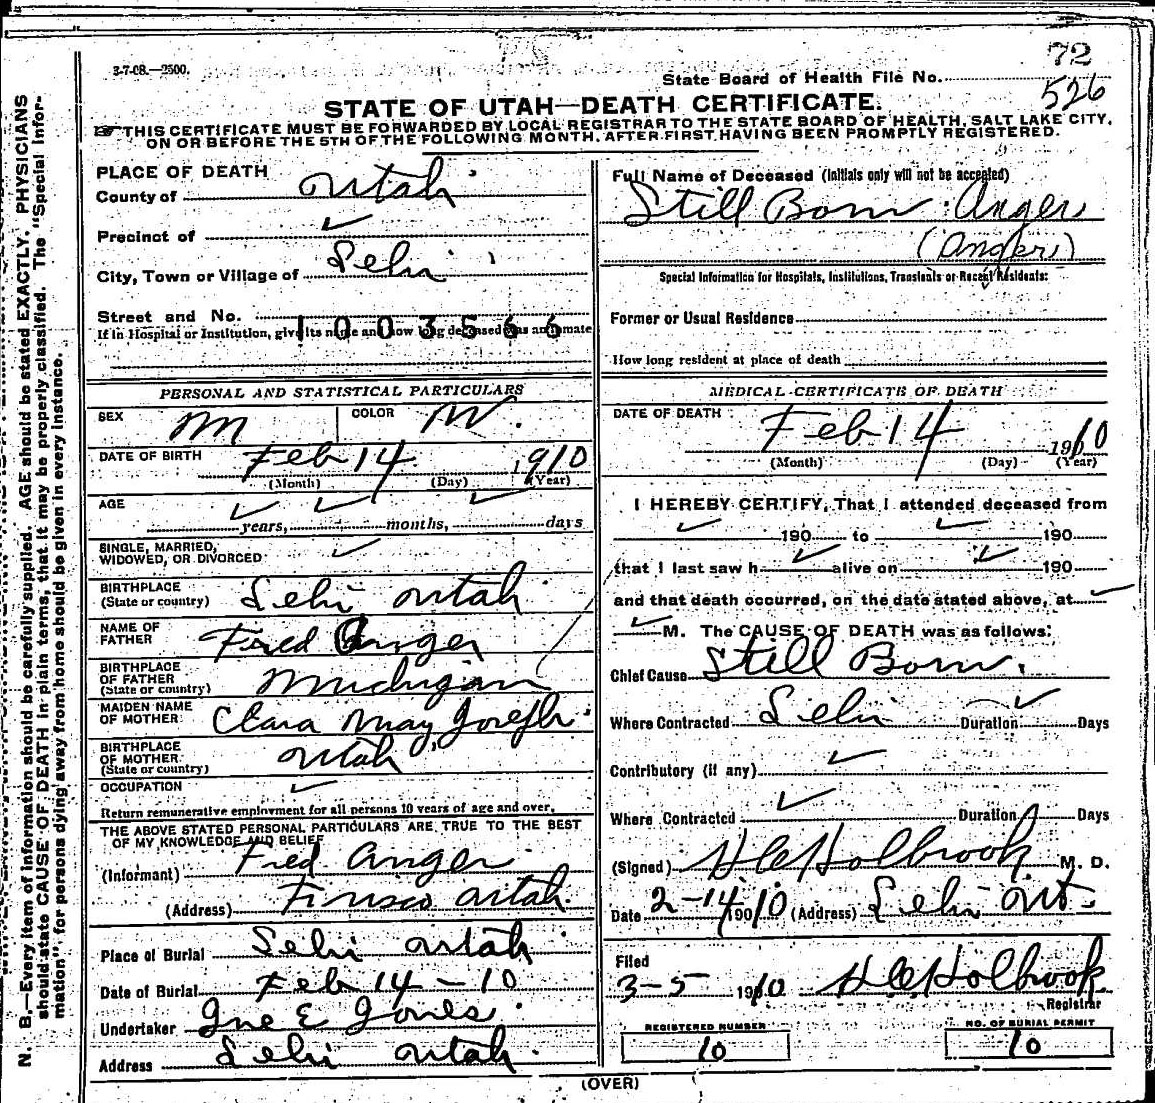 3-7-08.—2500.
72
State Board of Health File No.
526
STATE OF UTAH—DEATH CERTIFICATE.
THIS CERTIFICATE MUST BE FORWARDED BY LOCAL REGISTRAR TO THE STATE BOARD OF HEALTH, SALT LAKE CITY,
ON OR BEFORE THE 5TH OF THE FOLLOWING MONTH, AFTER FIRST HAVING BEEN PROMPTLY REGISTERED.
N. B.—Every item of information should be carefully supplied. AGE should be stated EXACTLY. PHYSICIANS
should state CAUSE OF DEATH in plain terms, that it may be properly classified. The "Special Infor-
mation" for persons dying away from home should be given in every instance.
PLACE OF DEATH
County of Utah
Precinct of
City, Town or Village of Lehi
Street and No.
If in Hospital or Institution, give its name and how long deceased was an inmate
1003566
PERSONAL AND STATISTICAL PARTICULARS
SEX M COLOR W.
DATE OF BIRTH Feb 14 1910
(Month) (Day) (Year)
AGE
years, months, days
SINGLE, MARRIED,
WIDOWED, OR DIVORCED
BIRTHPLACE
(State or country) Lehi Utah
NAME OF
FATHER Fred Anger
BIRTHPLACE
OF FATHER
(State or country) Michigan
MAIDEN NAME
OF MOTHER Clara May
BIRTHPLACE
OF MOTHER
(State or country) Utah
OCCUPATION
Return remunerative employment for all persons 10 years of age and over.
THE ABOVE STATED PERSONAL PARTICULARS ARE TRUE TO THE BEST
OF MY KNOWLEDGE AND BELIEF
(Informant) Fred Anger
(Address) Frisco Utah
Place of Burial Lehi Utah
Date of Burial Feb 14-10
Undertaker E Jones
Address Lehi Utah.
Full Name of Deceased (Initials only will not be accepted)
Still Born Anger
(Anger)
Special Information for Hospitals, Institutions, Transients or Recent Residents:
Former or Usual Residence
How long resident at place of death
MEDICAL CERTIFICATE OF DEATH
DATE OF DEATH
Feb 14 1910
(Month) (Day) (Year)
I HEREBY CERTIFY, That I attended deceased from
190 to 190
that I last saw h alive on 190
and that death occurred, on the date stated above, at
M. The CAUSE OF DEATH was as follows:
Chief Cause Still Born.
Where Contracted Lehi Duration Days
Contributory (if any)
Where Contracted Duration Days
(Signed) Holbrook M. D.
Date 2-14 1910 (Address) Lehi Ut.
Filed
3-5 1910 Holbrook
Registrar
REGISTERED NUMBER
10
NO. OF BURIAL PERMIT
10
(OVER)